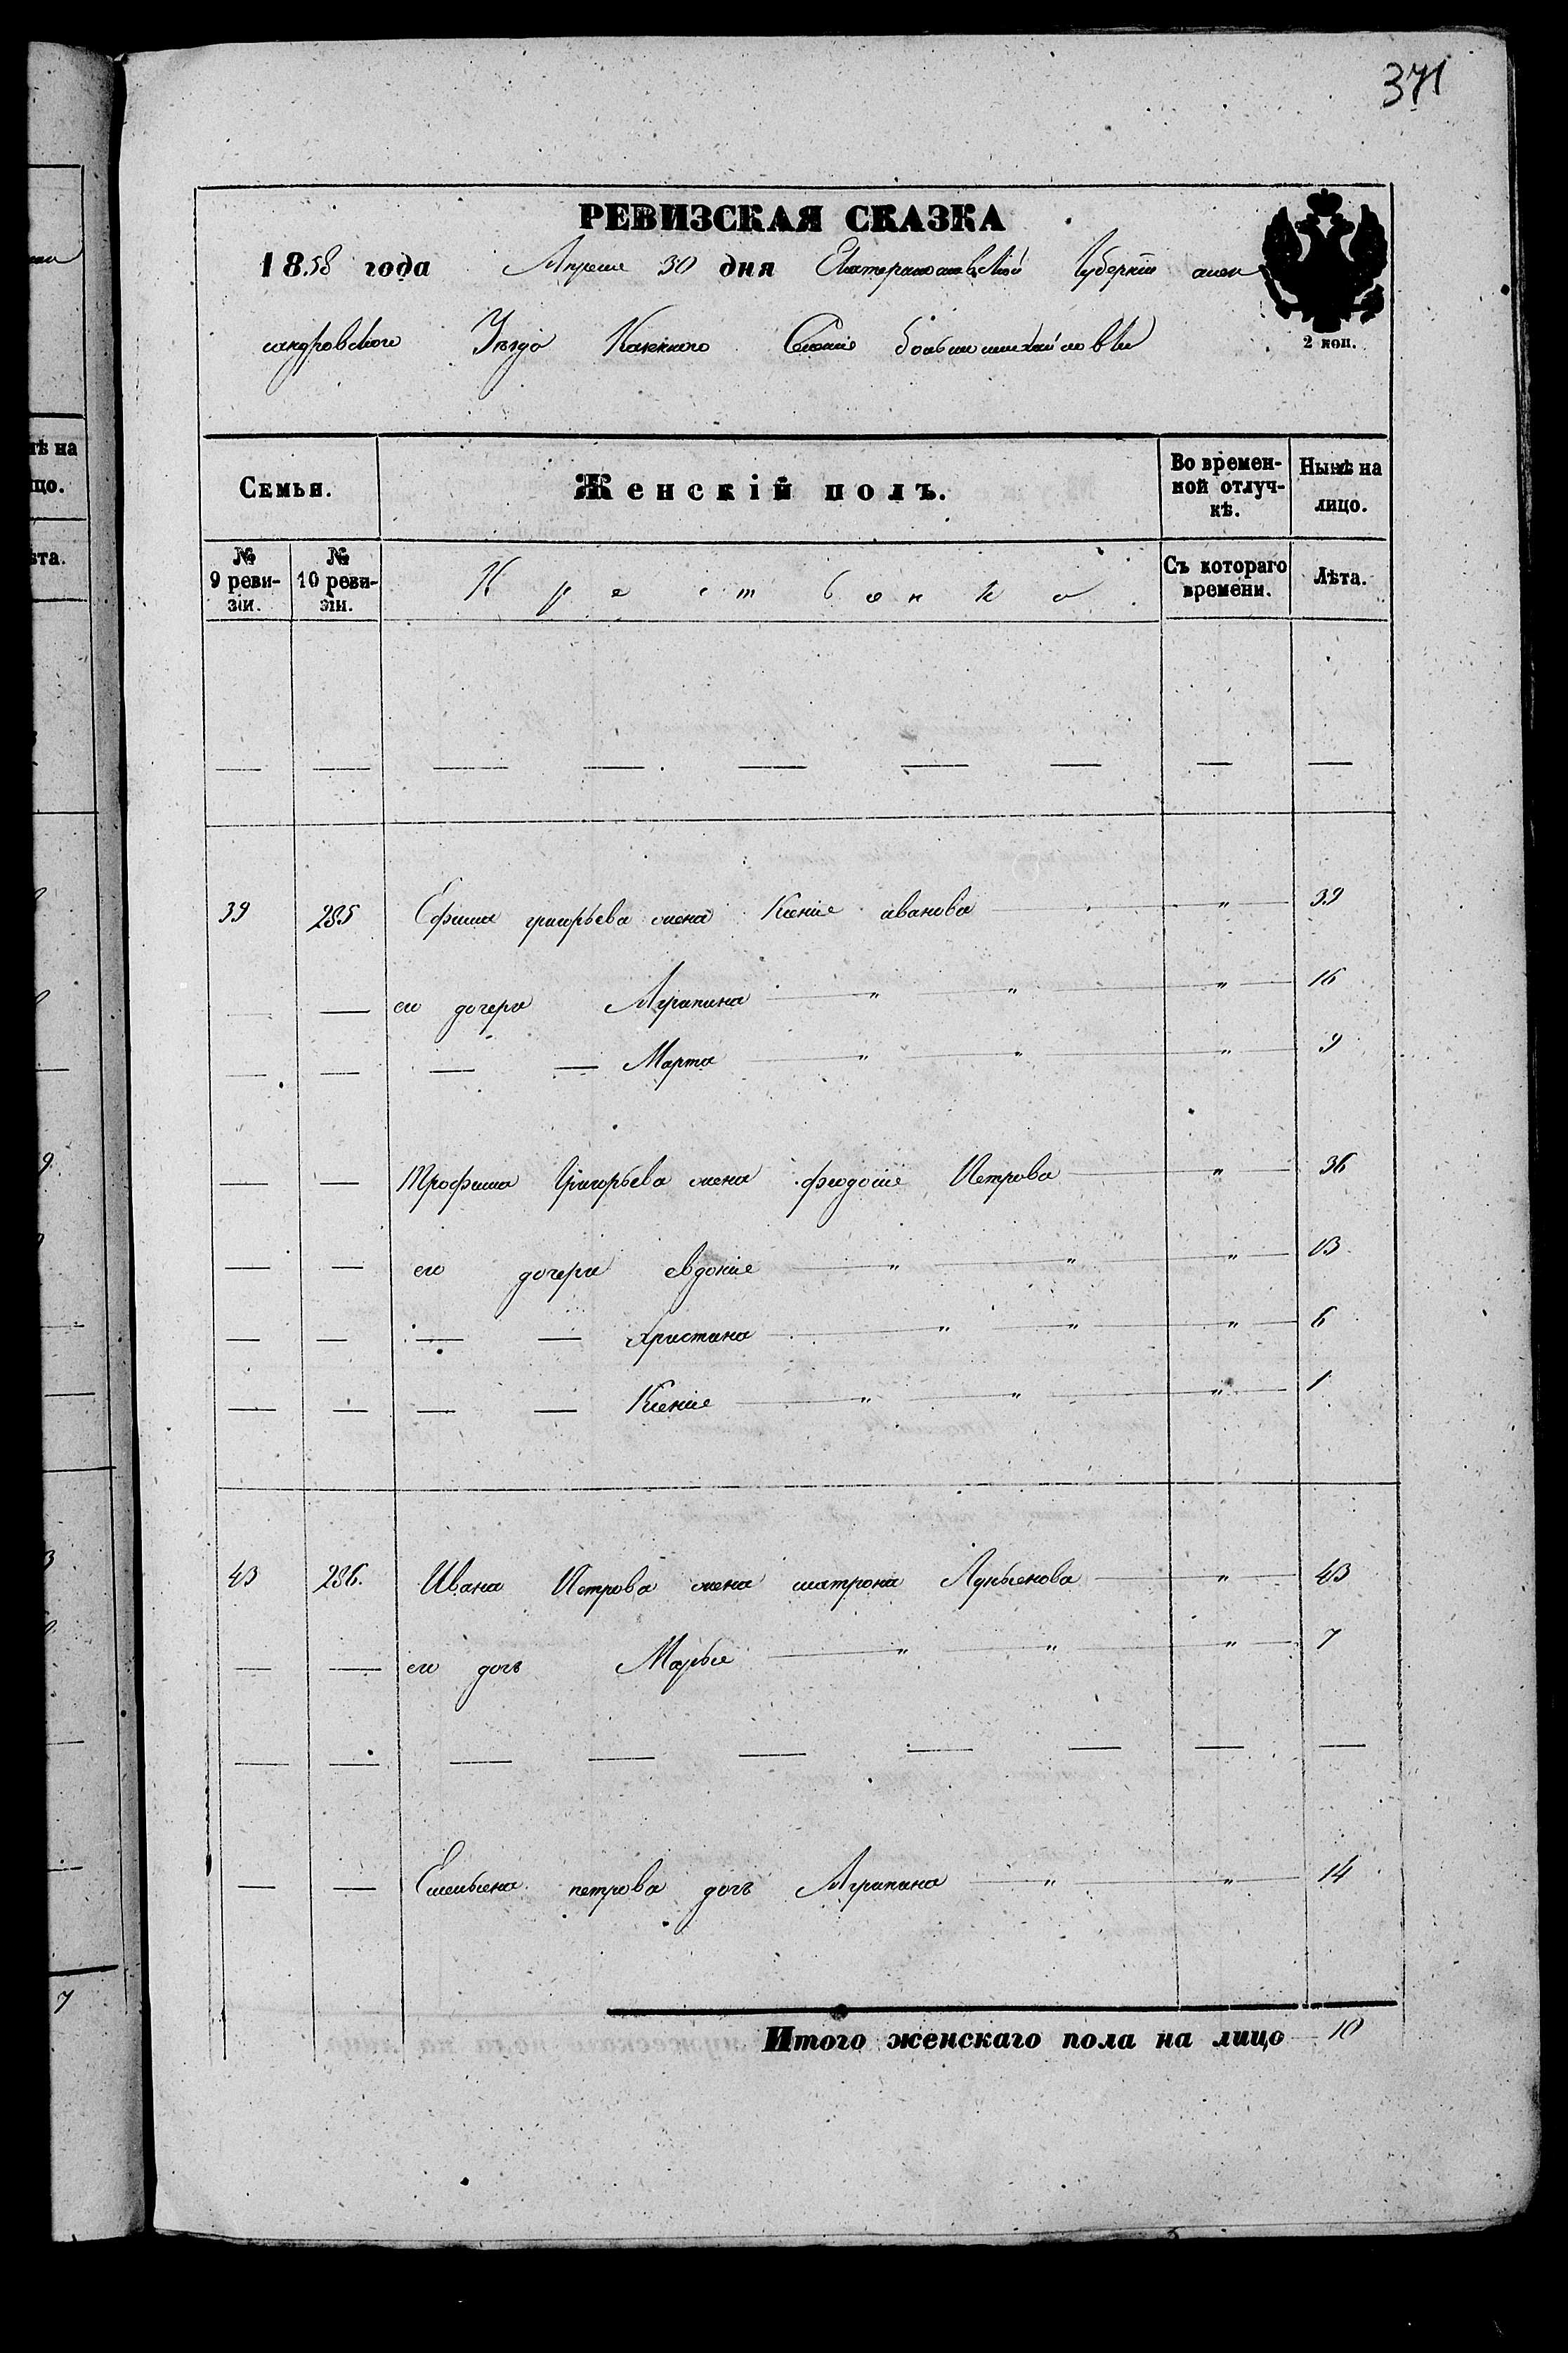 371
РЕВИЗСКАЯ СКАЗКА
1858 года Апреля 30 дня Екатеринославской Губернии алек
сандровского Уезда Казенного Селения большомихайловки
2 коп.
Семьи. Женскій полъ. Во времен-ной отлуч-кѣ. Нынѣ на лицо.
№ 9 реви-зіи. № 10 реви-зіи. Крестьянка Съ котораго времени. Лѣта.
— — — — — — — — —
39 285 Ефима григорьева жена Ксенія иванова — " — 39
— — его дочери Агрипина — " — " — " — 16
— — — — Марта — " — " — " — 9
— — Трофима Григорьева жена феодосія Петрова — " — 36
— — его дочери евдокія — " — " — " — 13
— — — — христина — " — " — " — 6
— — — — Ксенія — " — " — " — 1
43 286. Ивана Петрова жена матрона — " — 43
— — его дочь Марья — " — " — " — 7
— — — — — — — — —
— — Емельяна петрова дочь Агрипина — " — " — 14
Итого женскаго пола на лицо 10
ѣ на
цо.
ѣта.
7